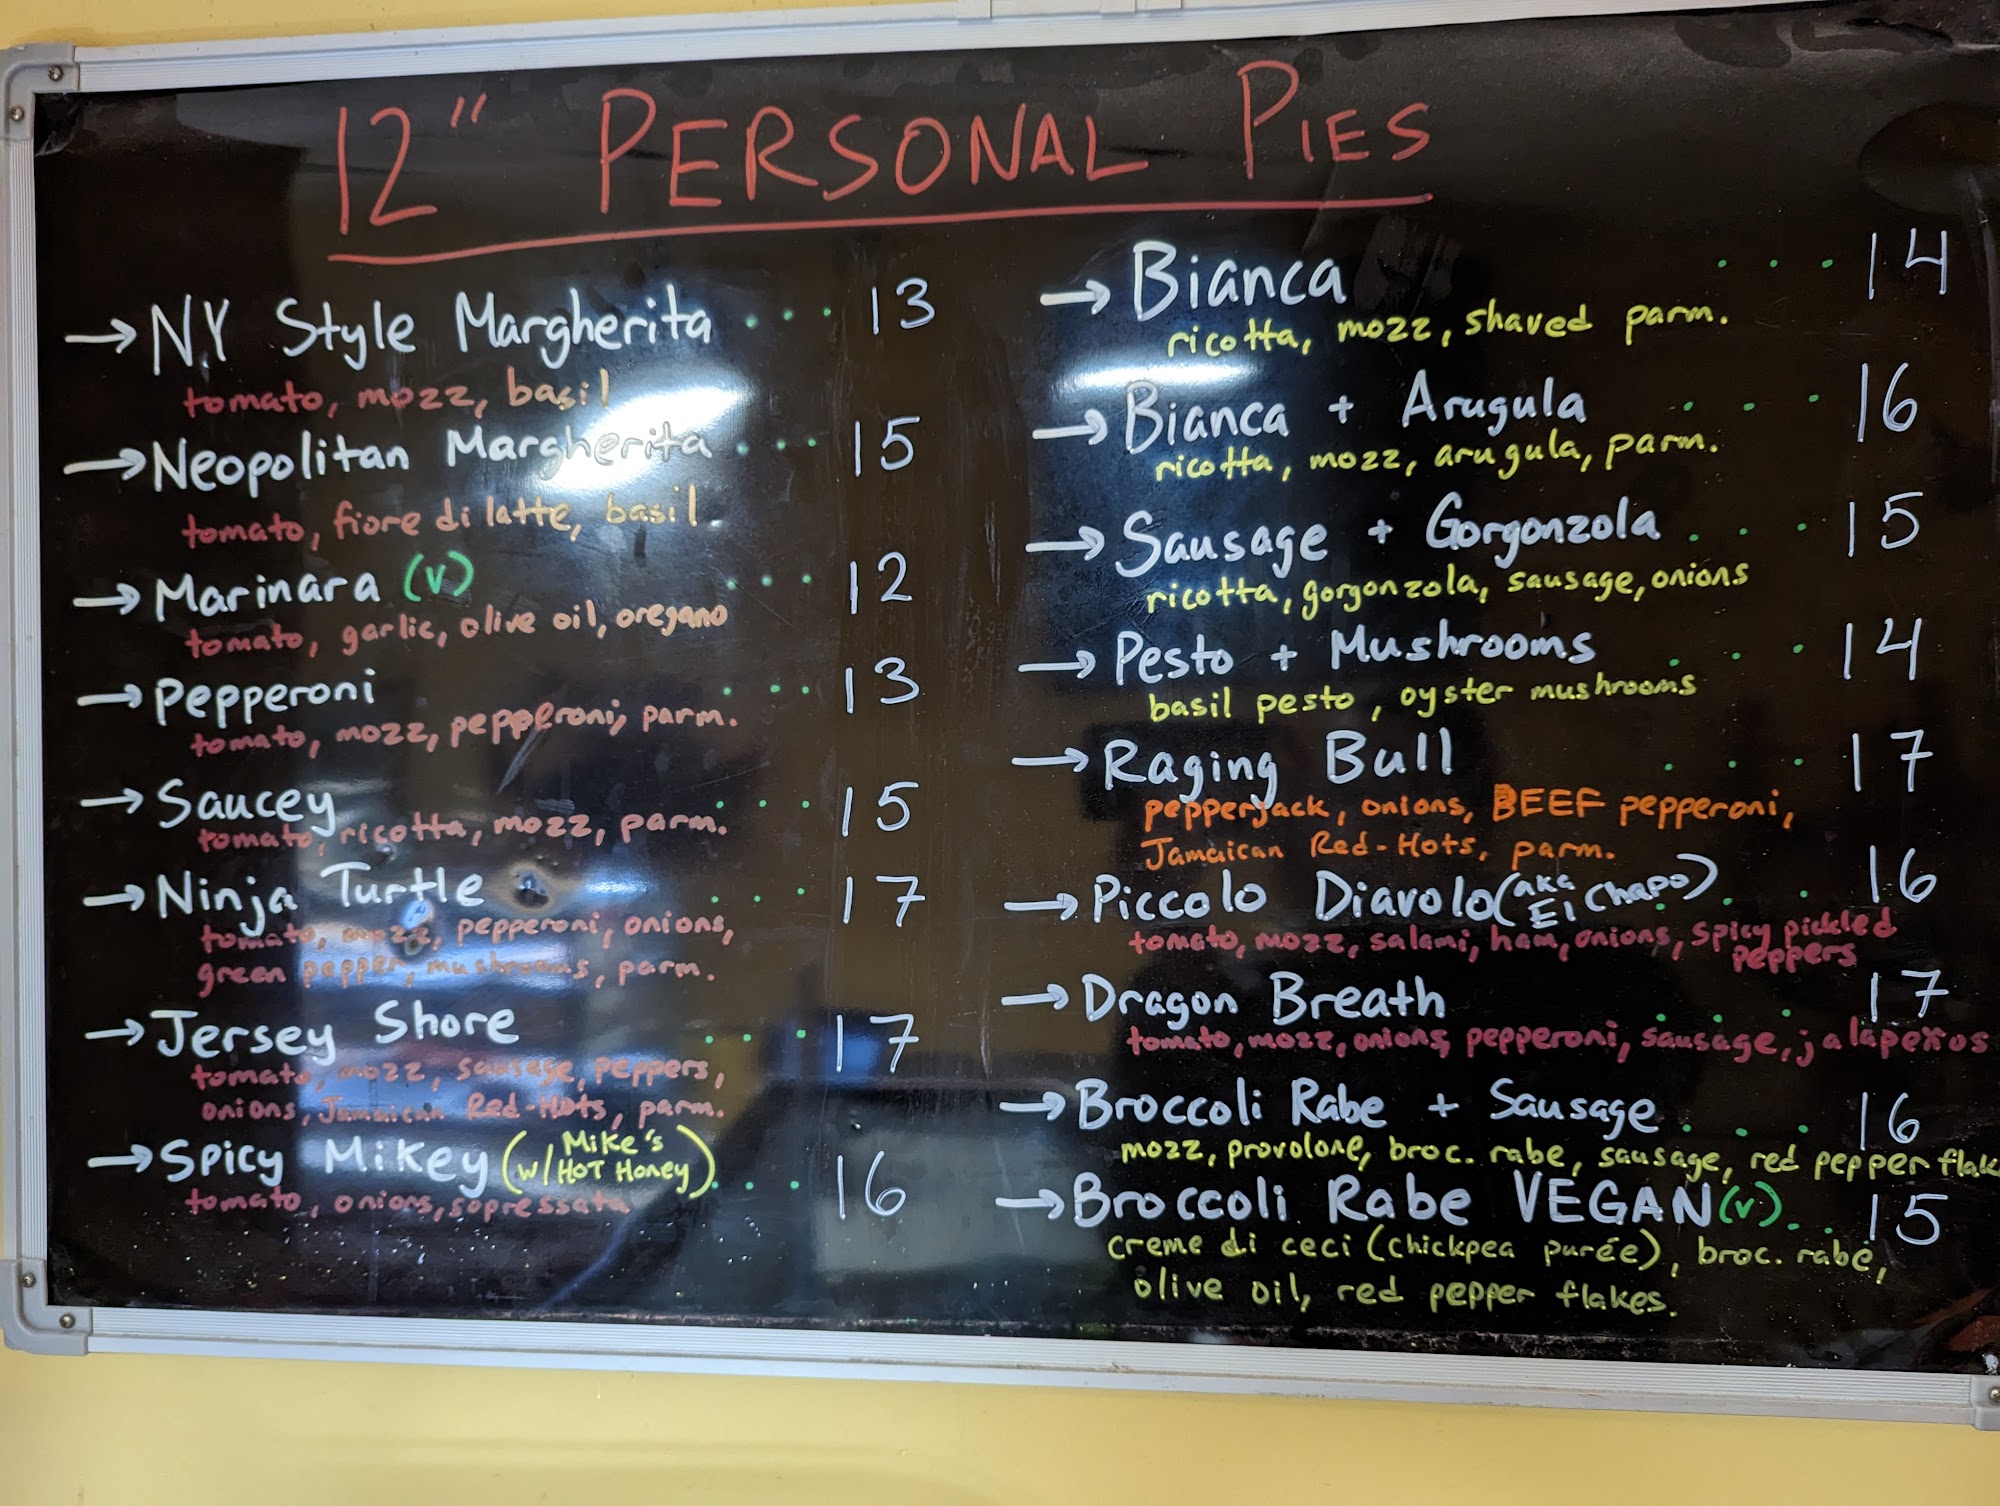 12" PERSONAL PIES
→ NY Style Margherita ... 13
tomato, mozz, basil
→ Neopolitan Margherita ... 15
tomato, fiore di latte, basil
→ Marinara (v) ... 12
tomato, garlic, olive oil, oregano
→ Pepperoni ... 13
tomato, mozz, pepperoni, parm.
→ Saucey ... 15
tomato, ricotta, mozz, parm.
→ Ninja Turtle ... 17
tomato, mozz, pepperoni, onions,
green pepper, mushrooms, parm.
→ Jersey Shore ... 17
tomato, mozz, sausage, peppers,
onions, Jamaican Red-Hots, parm.
→ Spicy Mikey (w/ Mike's HOT Honey) ... 16
tomato, onions, sopressata
→ Bianca ... 14
ricotta, mozz, shaved parm.
→ Bianca + Arugula ... 16
ricotta, mozz, arugula, parm.
→ Sausage + Gorgonzola ... 15
ricotta, gorgonzola, sausage, onions
→ Pesto + Mushrooms ... 14
basil pesto, oyster mushrooms
→ Raging Bull ... 17
pepperjack, onions, BEEF pepperoni,
Jamaican Red-Hots, parm.
→ Piccolo Diavolo (aka El Chapo) ... 16
tomato, mozz, salami, ham, onions, spicy pickled
peppers
→ Dragon Breath ... 17
tomato, mozz, onions, pepperoni, sausage, jalapeños
→ Broccoli Rabe + Sausage ... 16
mozz, provolone, broc. rabe, sausage, red pepper flak
→ Broccoli Rabe VEGAN (v) ... 15
creme di ceci (chickpea purée), broc. rabe,
olive oil, red pepper flakes.